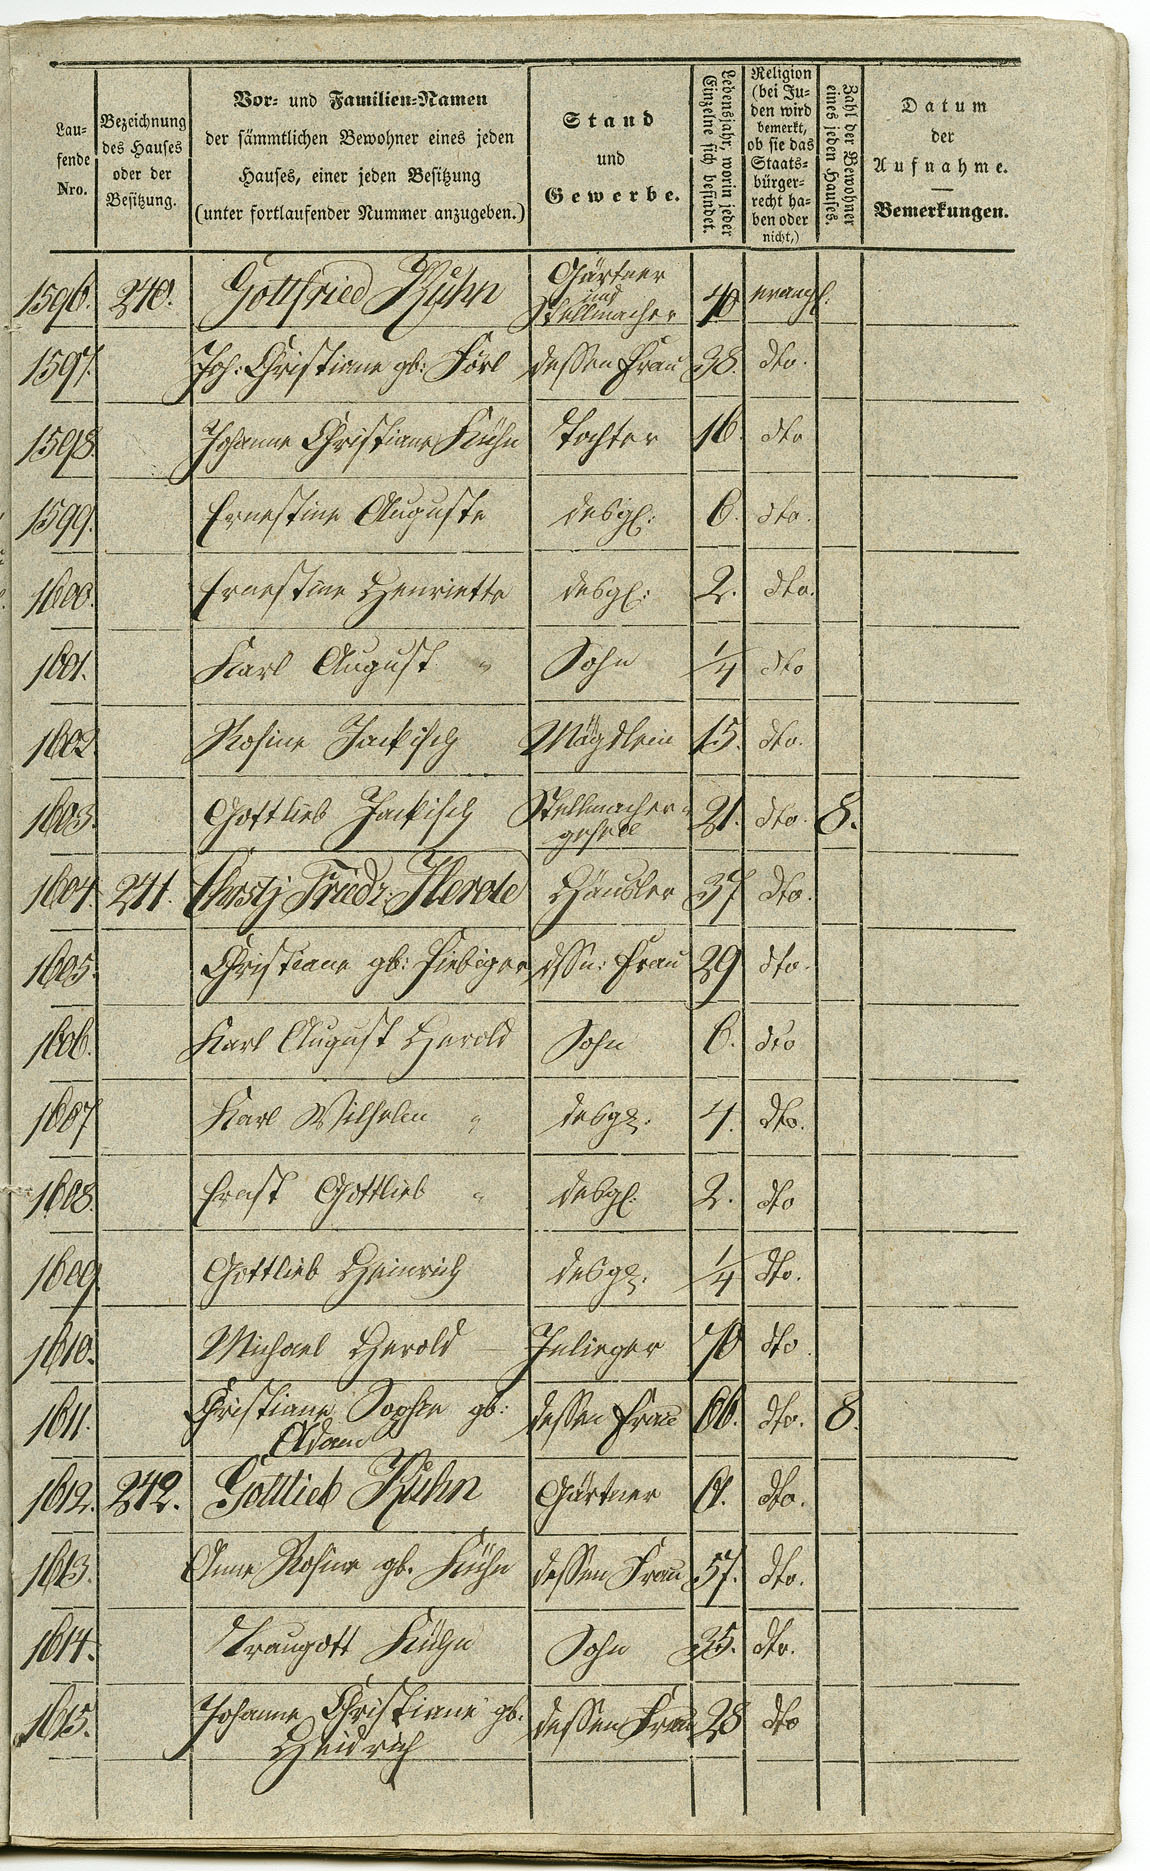 Lau-
fende
Nro.
Bezeichnung
des Hauses
oder der
Besitzung.
Vor- und Familien-Namen
der sämmtlichen Bewohner eines jeden
Hauses, einer jeden Besitzung
(unter fortlaufender Nummer anzugeben.)
Stand
und
Gewerbe.
Lebensjahr, worin jeder
Einzelne sich befindet.
Religion
(bei Ju-
den wird
bemerkt,
ob sie das
Staats-
bürger-
recht ha-
ben oder
nicht,)
Zahl der Bewohner
eines jeden Hauses.
Datum
der
Aufnahme.
Bemerkungen.
1596. 240. Gottfried Kühn Gärtner und Stellmacher 40 evangl.
1597. Joh: Christiane gb: dessen Frau 38. dto.
1598 Johanne Christiane Kühn Tochter 16. dto
1599. Ernestine Auguste desgl: 6. dto.
1600. Ernestine Henriette desgl: 2. dto.
1601. Karl August " Sohn 1/4 dto
1602 Rosine Jackisch Mägdlein 15. dto.
1603. Gottlieb Jackisch Stellmacher- 21. dto. 8.
1604. 241. Christ. Friedr: Herold Häusler 37 dto.
1605. Christiane gb: Fiebiger dssn: Frau 29 dto.
1606. Karl August Herold Sohn 6. dto
1607 Karl Wilhelm " desgl. 4. dto.
1608. Ernst Gottlieb " desgl. 2. dto
1609. Gottlieb Heinrich desgl. 1/4 dto.
1610. Michael Herold Inlieger 70 dto.
1611. Christiane Sophie gb: Adam dessen Frau 66. dto. 8.
1612. 242. Gottlieb Kühn Gärtner 61. dto.
1613. Anne Rosine gb. Kühn dessen Frau 57. dto.
1614. Traugott Kühn Sohn 35. dto.
1615. Johanne Christiane gb. Heidrich dessen Frau 28 dto